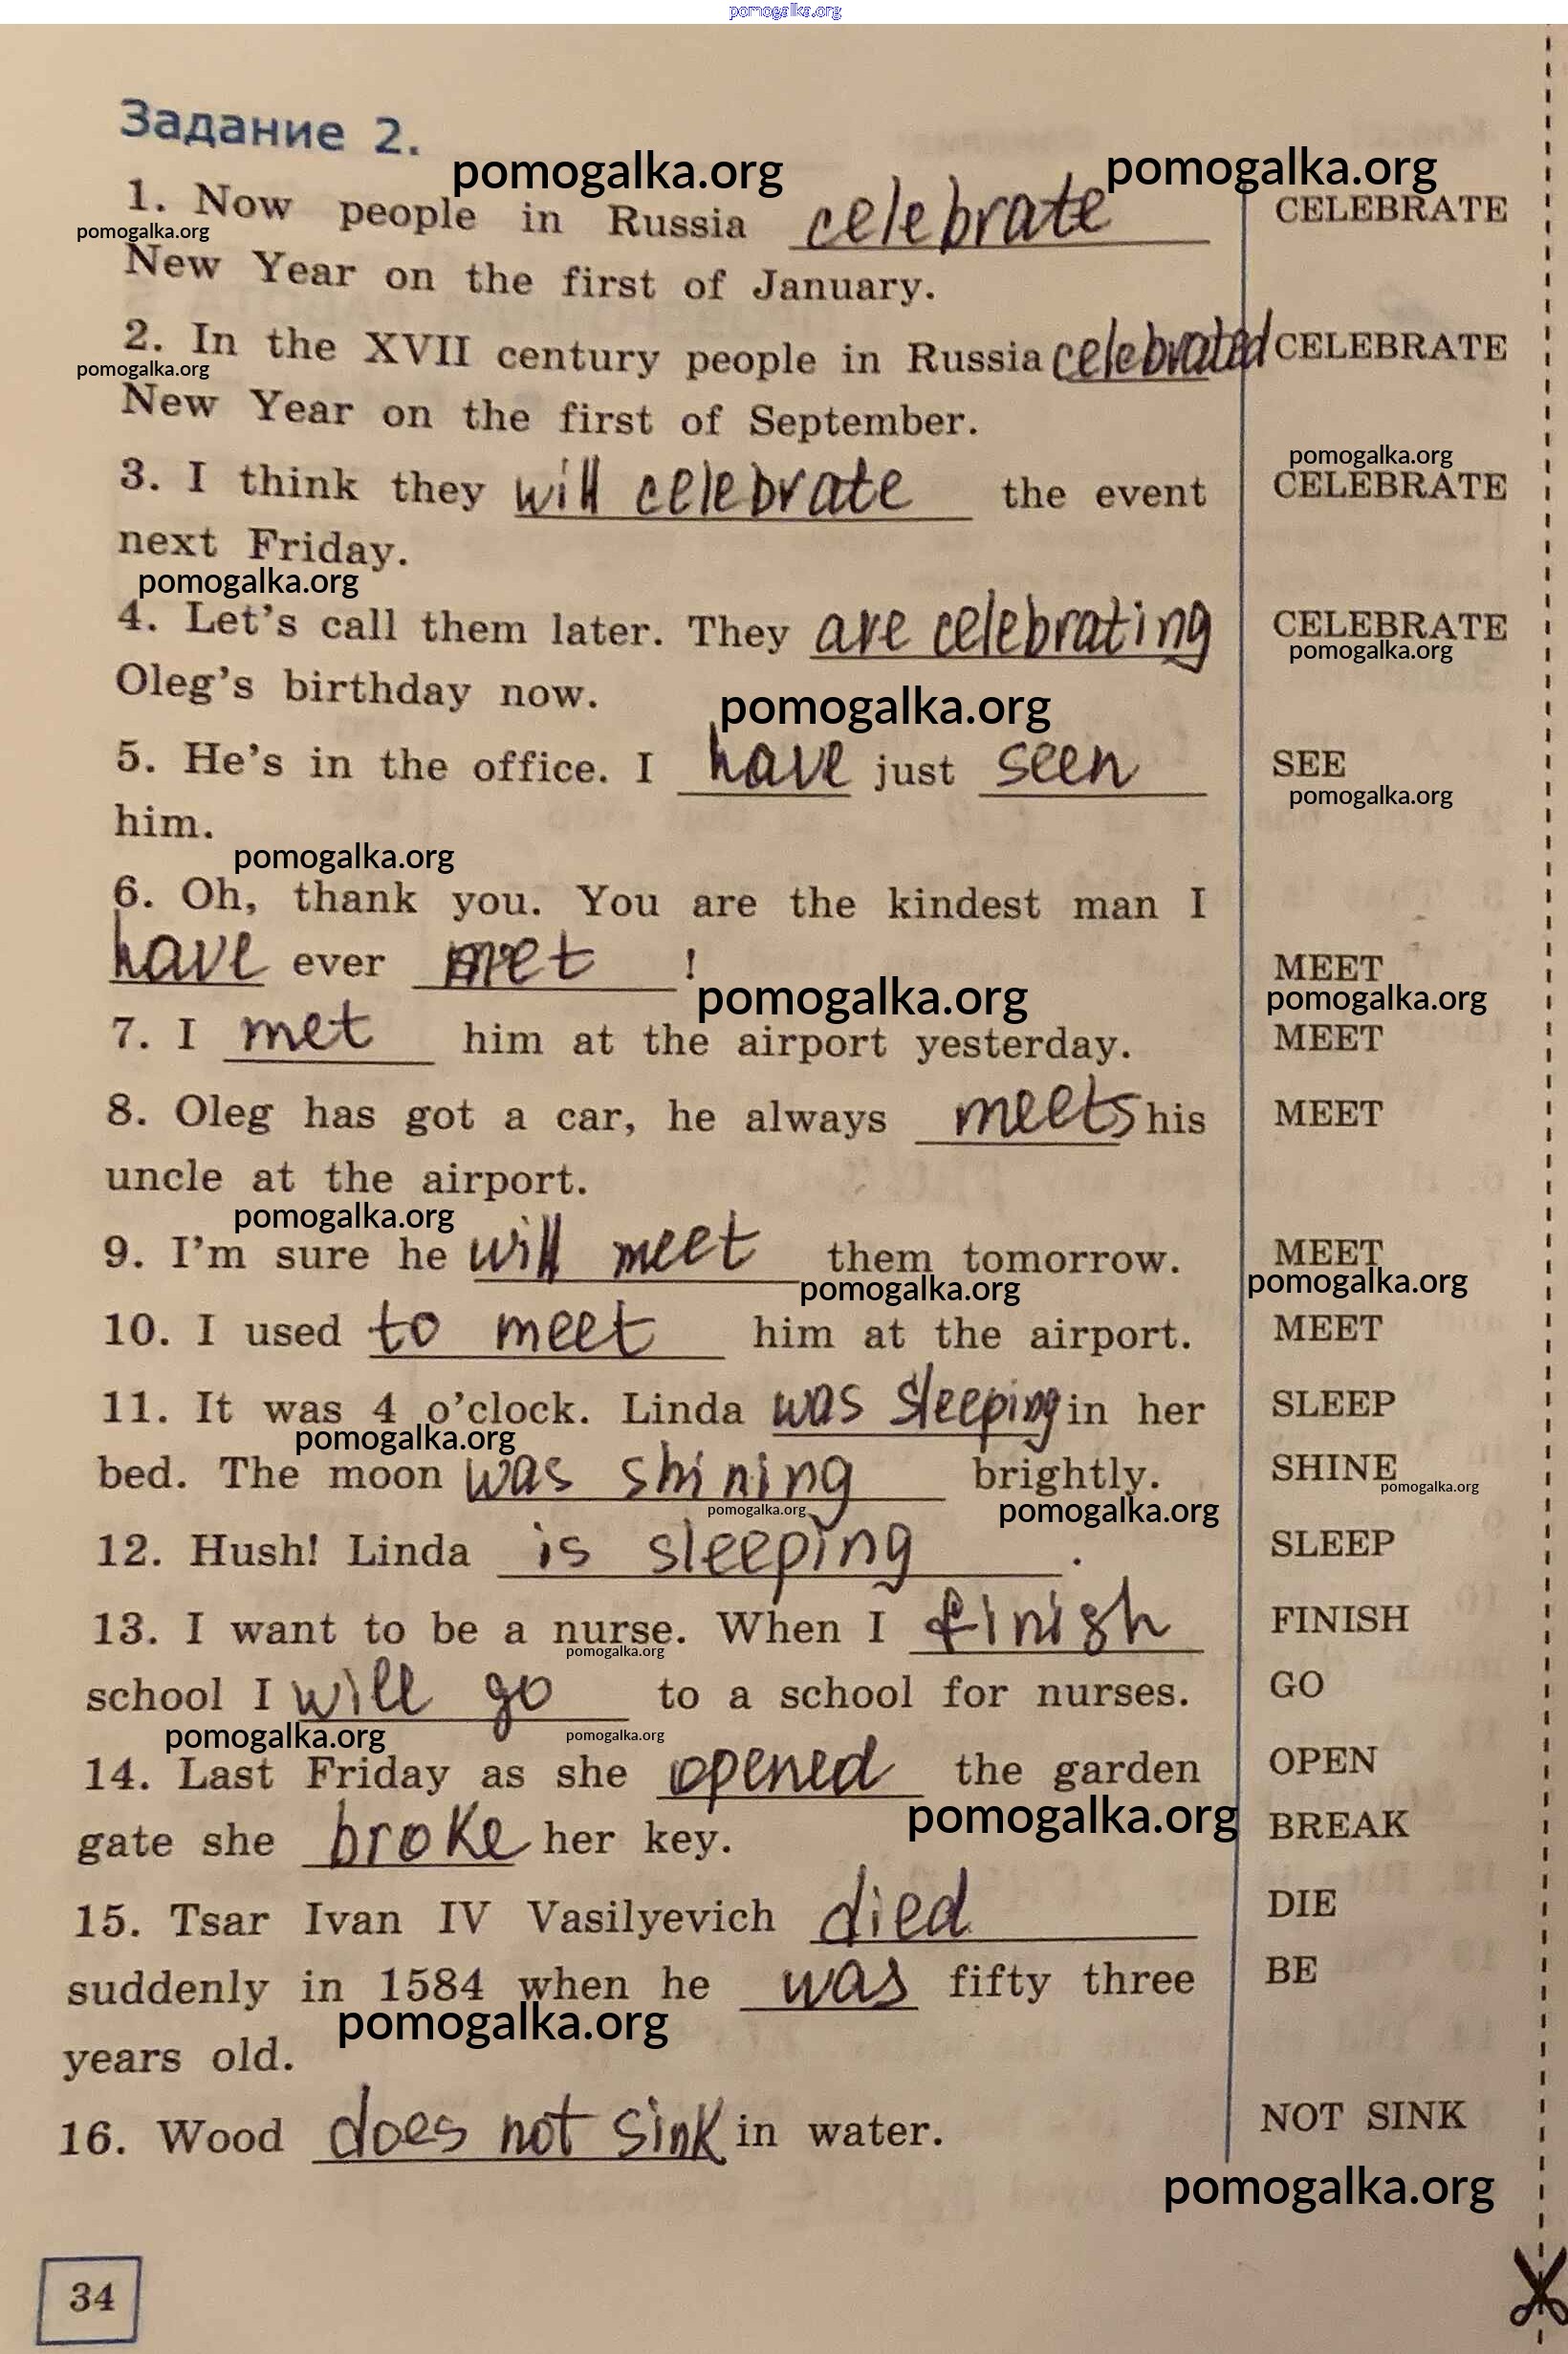 pomogalka.org
Задание 2.
pomogalka.org pomogalka.org
1. Now people in Russia celebrate CELEBRATE
pomogalka.org
New Year on the first of January.
2. In the XVII century people in Russia celebrated CELEBRATE
pomogalka.org
New Year on the first of September.
pomogalka.org
3. I think they will celebrate the event CELEBRATE
next Friday.
pomogalka.org
4. Let's call them later. They are celebrating CELEBRATE
pomogalka.org
Oleg's birthday now.
pomogalka.org
5. He's in the office. I have just seen SEE
pomogalka.org
him.
pomogalka.org
6. Oh, thank you. You are the kindest man I
have ever met ! MEET
pomogalka.org pomogalka.org
7. I met him at the airport yesterday. MEET
8. Oleg has got a car, he always meets his MEET
uncle at the airport.
pomogalka.org
9. I'm sure he will meet them tomorrow. MEET
pomogalka.org pomogalka.org
10. I used to meet him at the airport. MEET
11. It was 4 o'clock. Linda was sleeping in her SLEEP
pomogalka.org
bed. The moon was shining brightly. SHINE
pomogalka.org
pomogalka.org pomogalka.org
12. Hush! Linda is sleeping . SLEEP
13. I want to be a nurse. When I finish FINISH
pomogalka.org
school I will go to a school for nurses. GO
pomogalka.org pomogalka.org
14. Last Friday as she opened the garden OPEN
pomogalka.org
gate she broke her key. BREAK
15. Tsar Ivan IV Vasilyevich died DIE
suddenly in 1584 when he was fifty three BE
pomogalka.org
years old.
16. Wood does not sink in water. NOT SINK
pomogalka.org
34